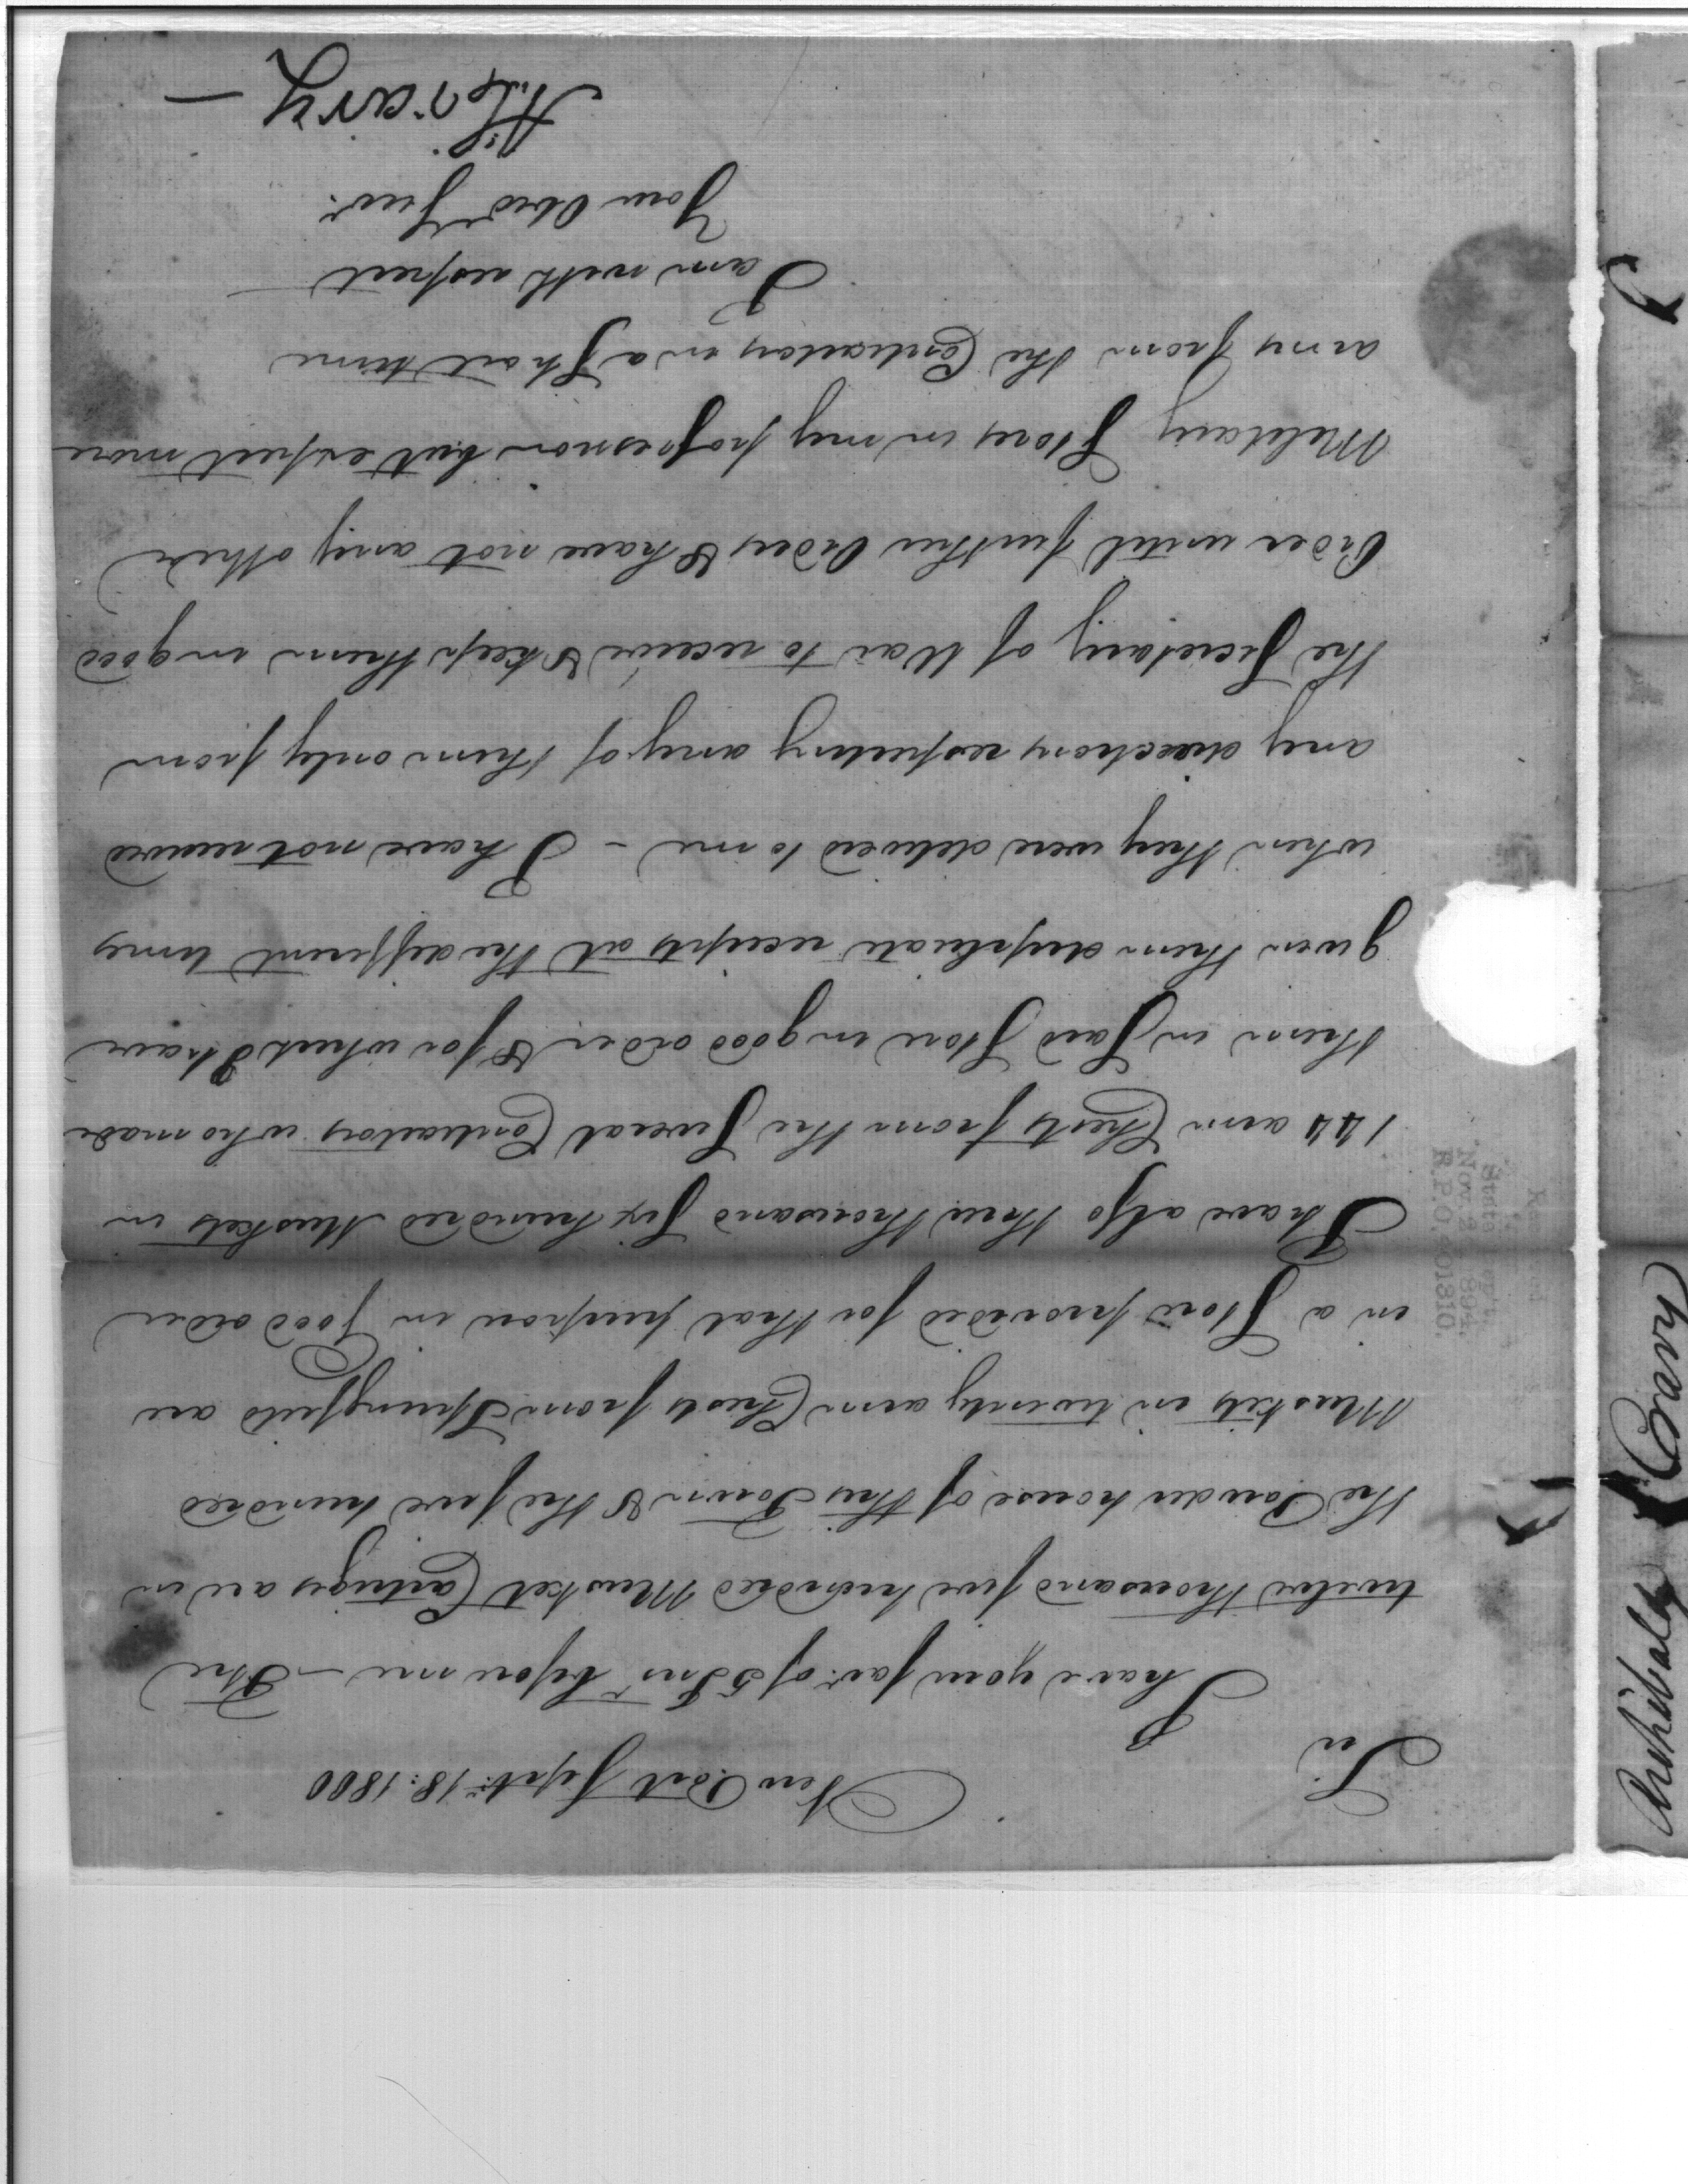 New Port Sept.r 18: 1800
Sir
I have your fav.r of 5 Ins.t before me – The
twelve thousand five hundred Musket Cartriges are in
the Powder house of this Town & the five hundred
Muskets in twenty arm Chests from Springfield are
in a Store provided for that purpose in Good order
I have also three thousand Six hundred Muskets in
144 arm Chests from the Several Contractors who made
them in Said Store in good order & for which I have
given them duplicate receipts at the different times
when they were delived to me – I have not received
any directions respecting any of them only from
the Secretary of War to receive & keep them in good
Order until further Orders & have not any other
Military Stores in my possession but expect more
arms from the Contractors in a Short time
I am with respect
Your Obed.t Serv.t
Arch.d Crary –
State Dep't.
Nov. 2
R.P.O. 401810.
Archibald Crary